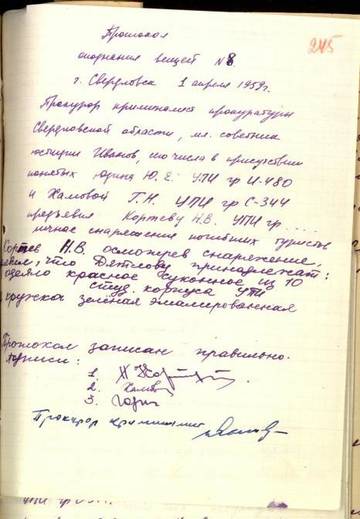 245
Протокол
опознания вещей №8
г. Свердловск 1 апреля 1959 г.
Прокурор криминалист прокуратуры
Свердловской области, мл. советник
юстиции Иванов, сего числа в присутствии
понятых Юдина Ю.Е. УПИ гр И-480
и Хамовой Г.Н. УПИ гр С-344
предъявил Кортеву Н.В. УПИ гр. ....
личное снаряжение погибших туристов
Кортев Н.В. осмотрев снаряжение,
что Дятлову принадлежат:
одеяло красное суконное из 10
студ. корпуса УПИ
кружка зелёная эмалированная
Протокол записан правильно.
1.
2. Хамова
3. Юдин
Прокурор криминалист
УПИ гр